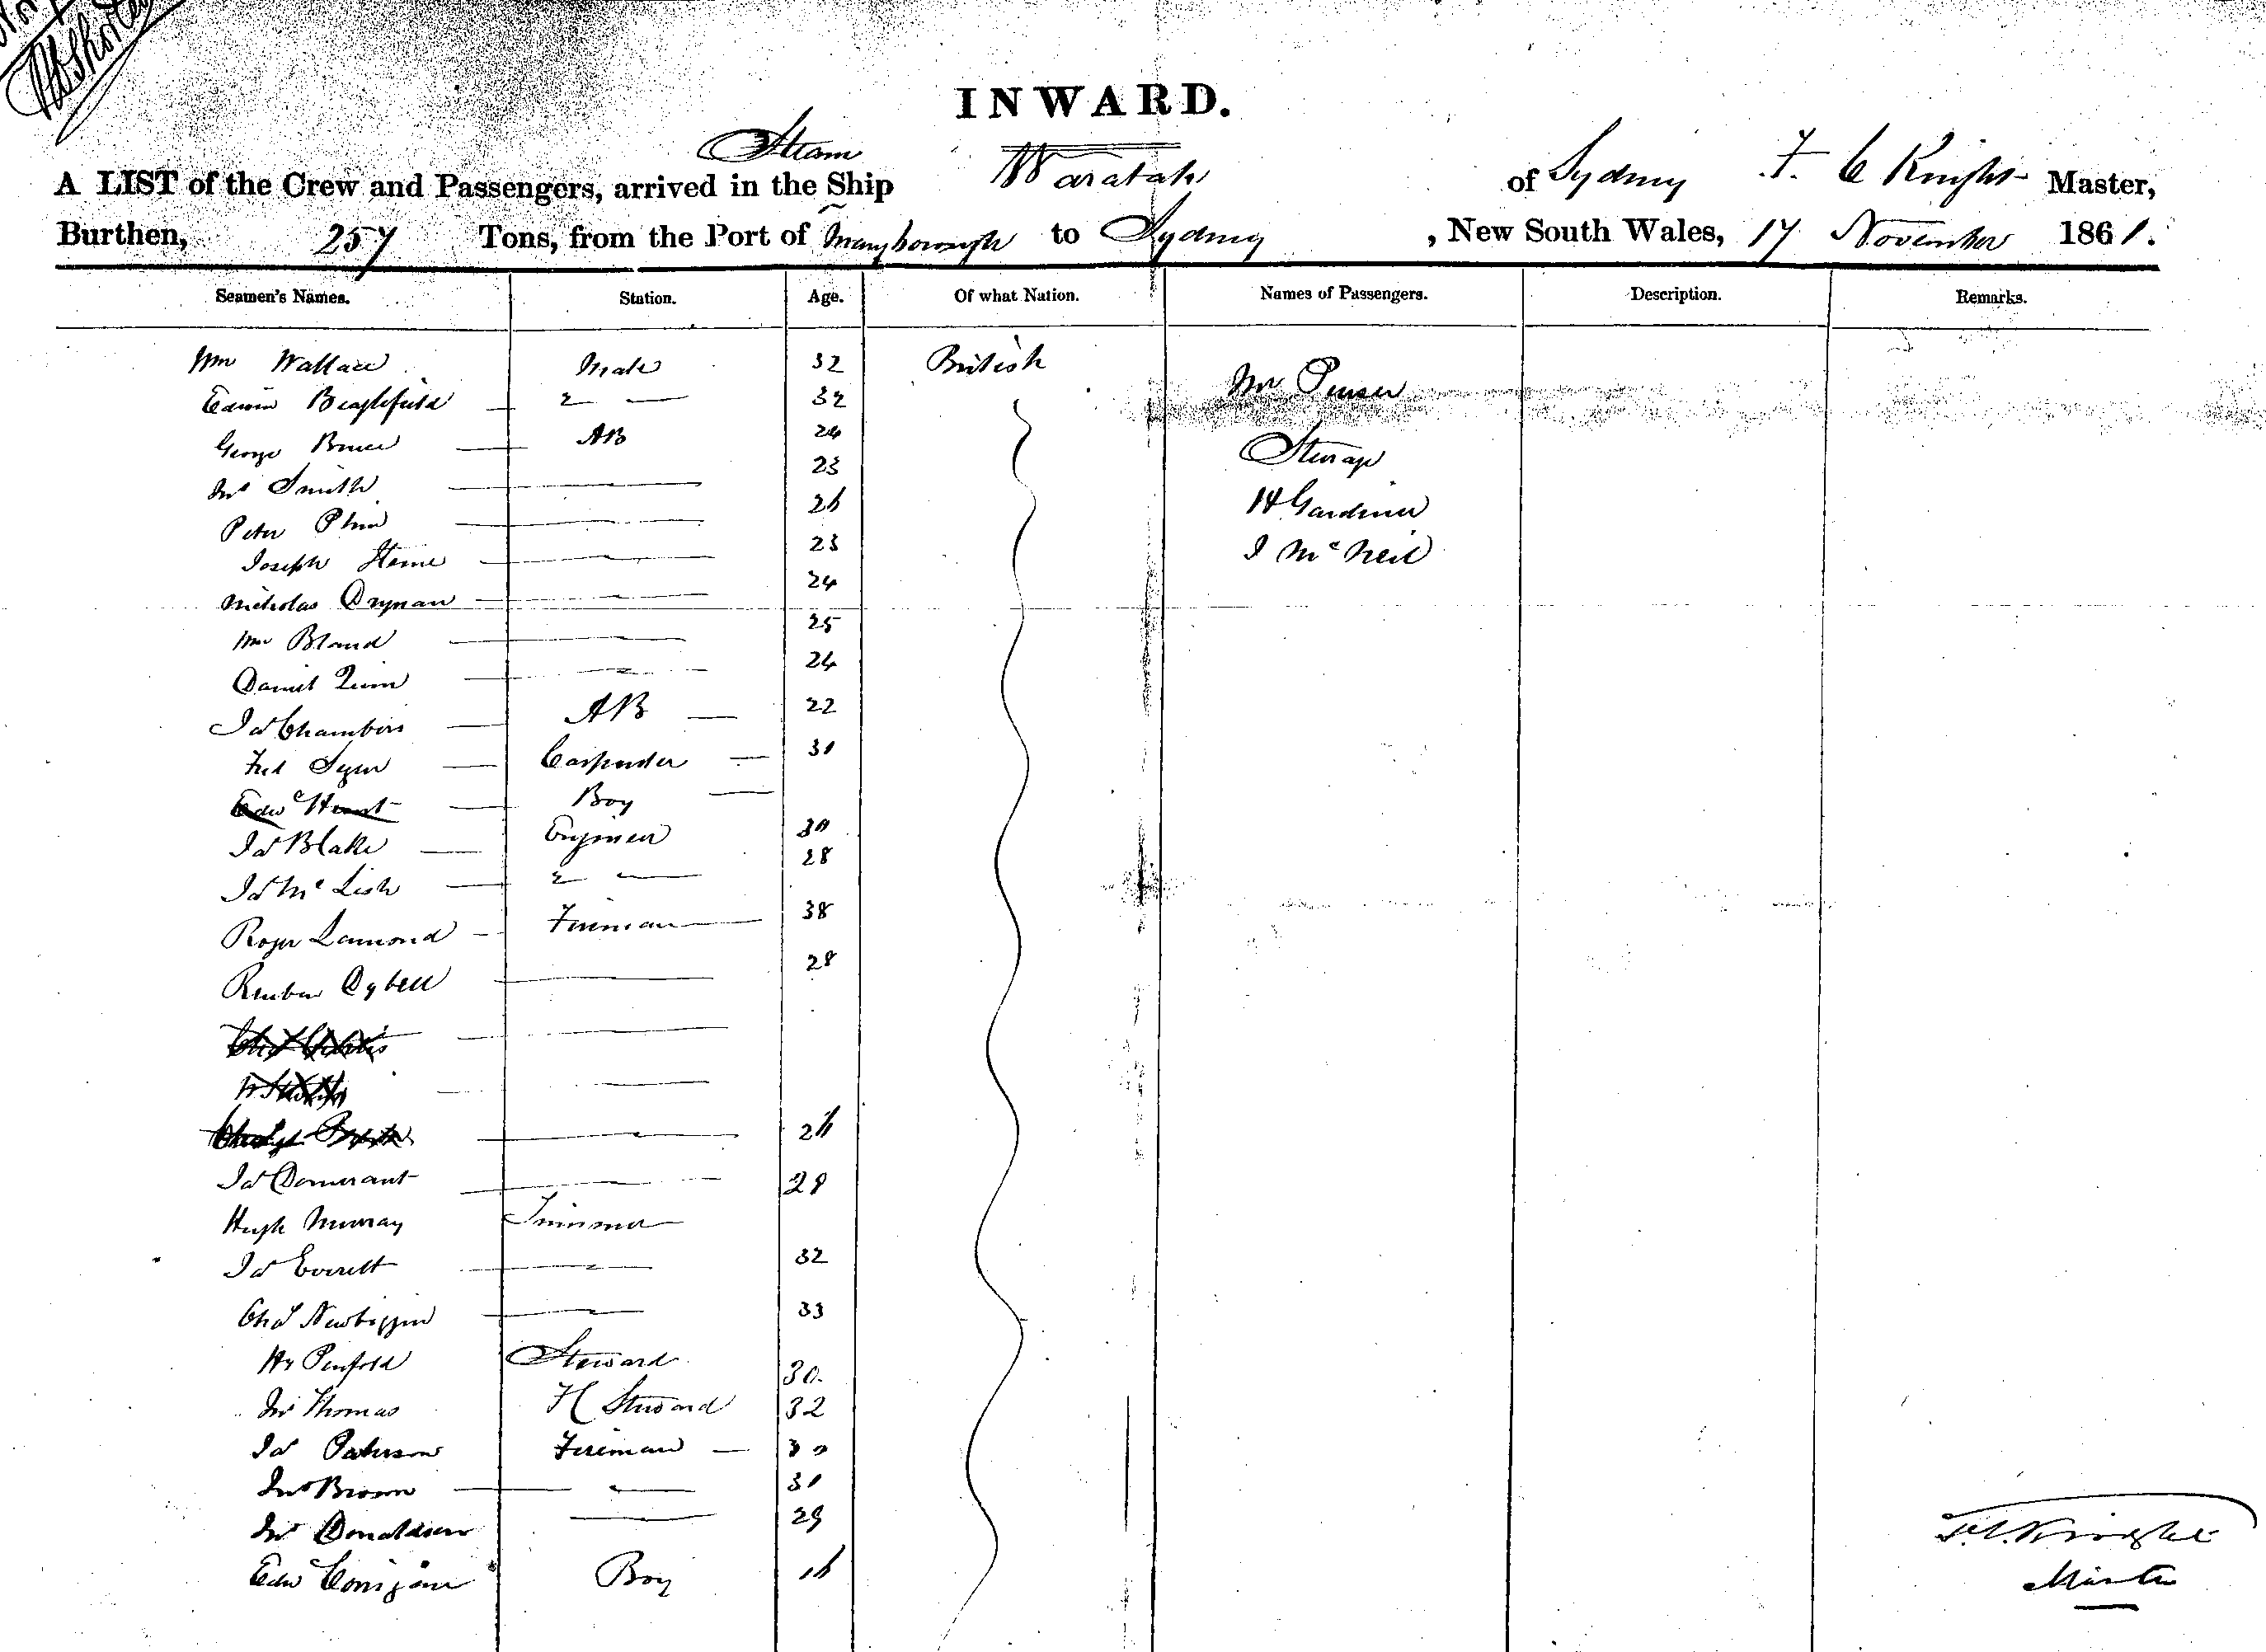 INWARD.
Steam
A LIST of the Crew and Passengers, arrived in the Ship Waratah of Sydney F. C Knight Master,
Burthen, 257 Tons, from the Port of Maryborough to Sydney, New South Wales, 17 November 1861.
Seamen's Names. Station. Age. Of what Nation. Names of Passengers. Description. Remarks.
Wm Wallace Mate 32 British Mr Purser
Edwin 32
George Bruce AB 24 Steerage
Jno Smith 23 H Gardiner
Peter 26 J McNeil
Joseph 23
Nicholas Drynan 24
Wm Bland 25
Daniel Quinn 24
Jas Chambers AB 22
Fred Carpenter 31
Edw Hunt Boy
Jas Blake Engineer 30
Jas McLish 28
Roger Lamond Fireman 38
Reuben Dybell 28
26
Jas 28
Hugh Murray Trimmer
Jas Everett 32
Chas Newbiggin 33
Hy Penfold Steward 30.
Jno Thomas F C Steward 32
Jas Paterson Fireman 30
Jno Brown 31
Jno Donaldson 29
Edw Boy 16
F. C. Knight
Master